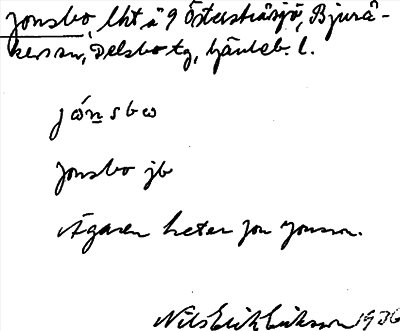 Jonsbo, lht å 9 Österstråsjö, Bjurå-
kers sn, Delsbo tg, Gävleb. l.
jo̱nsbω
Jonsbo jb
Ägaren heter Jon Jonsson.
Nils Erik Eriksson 1936